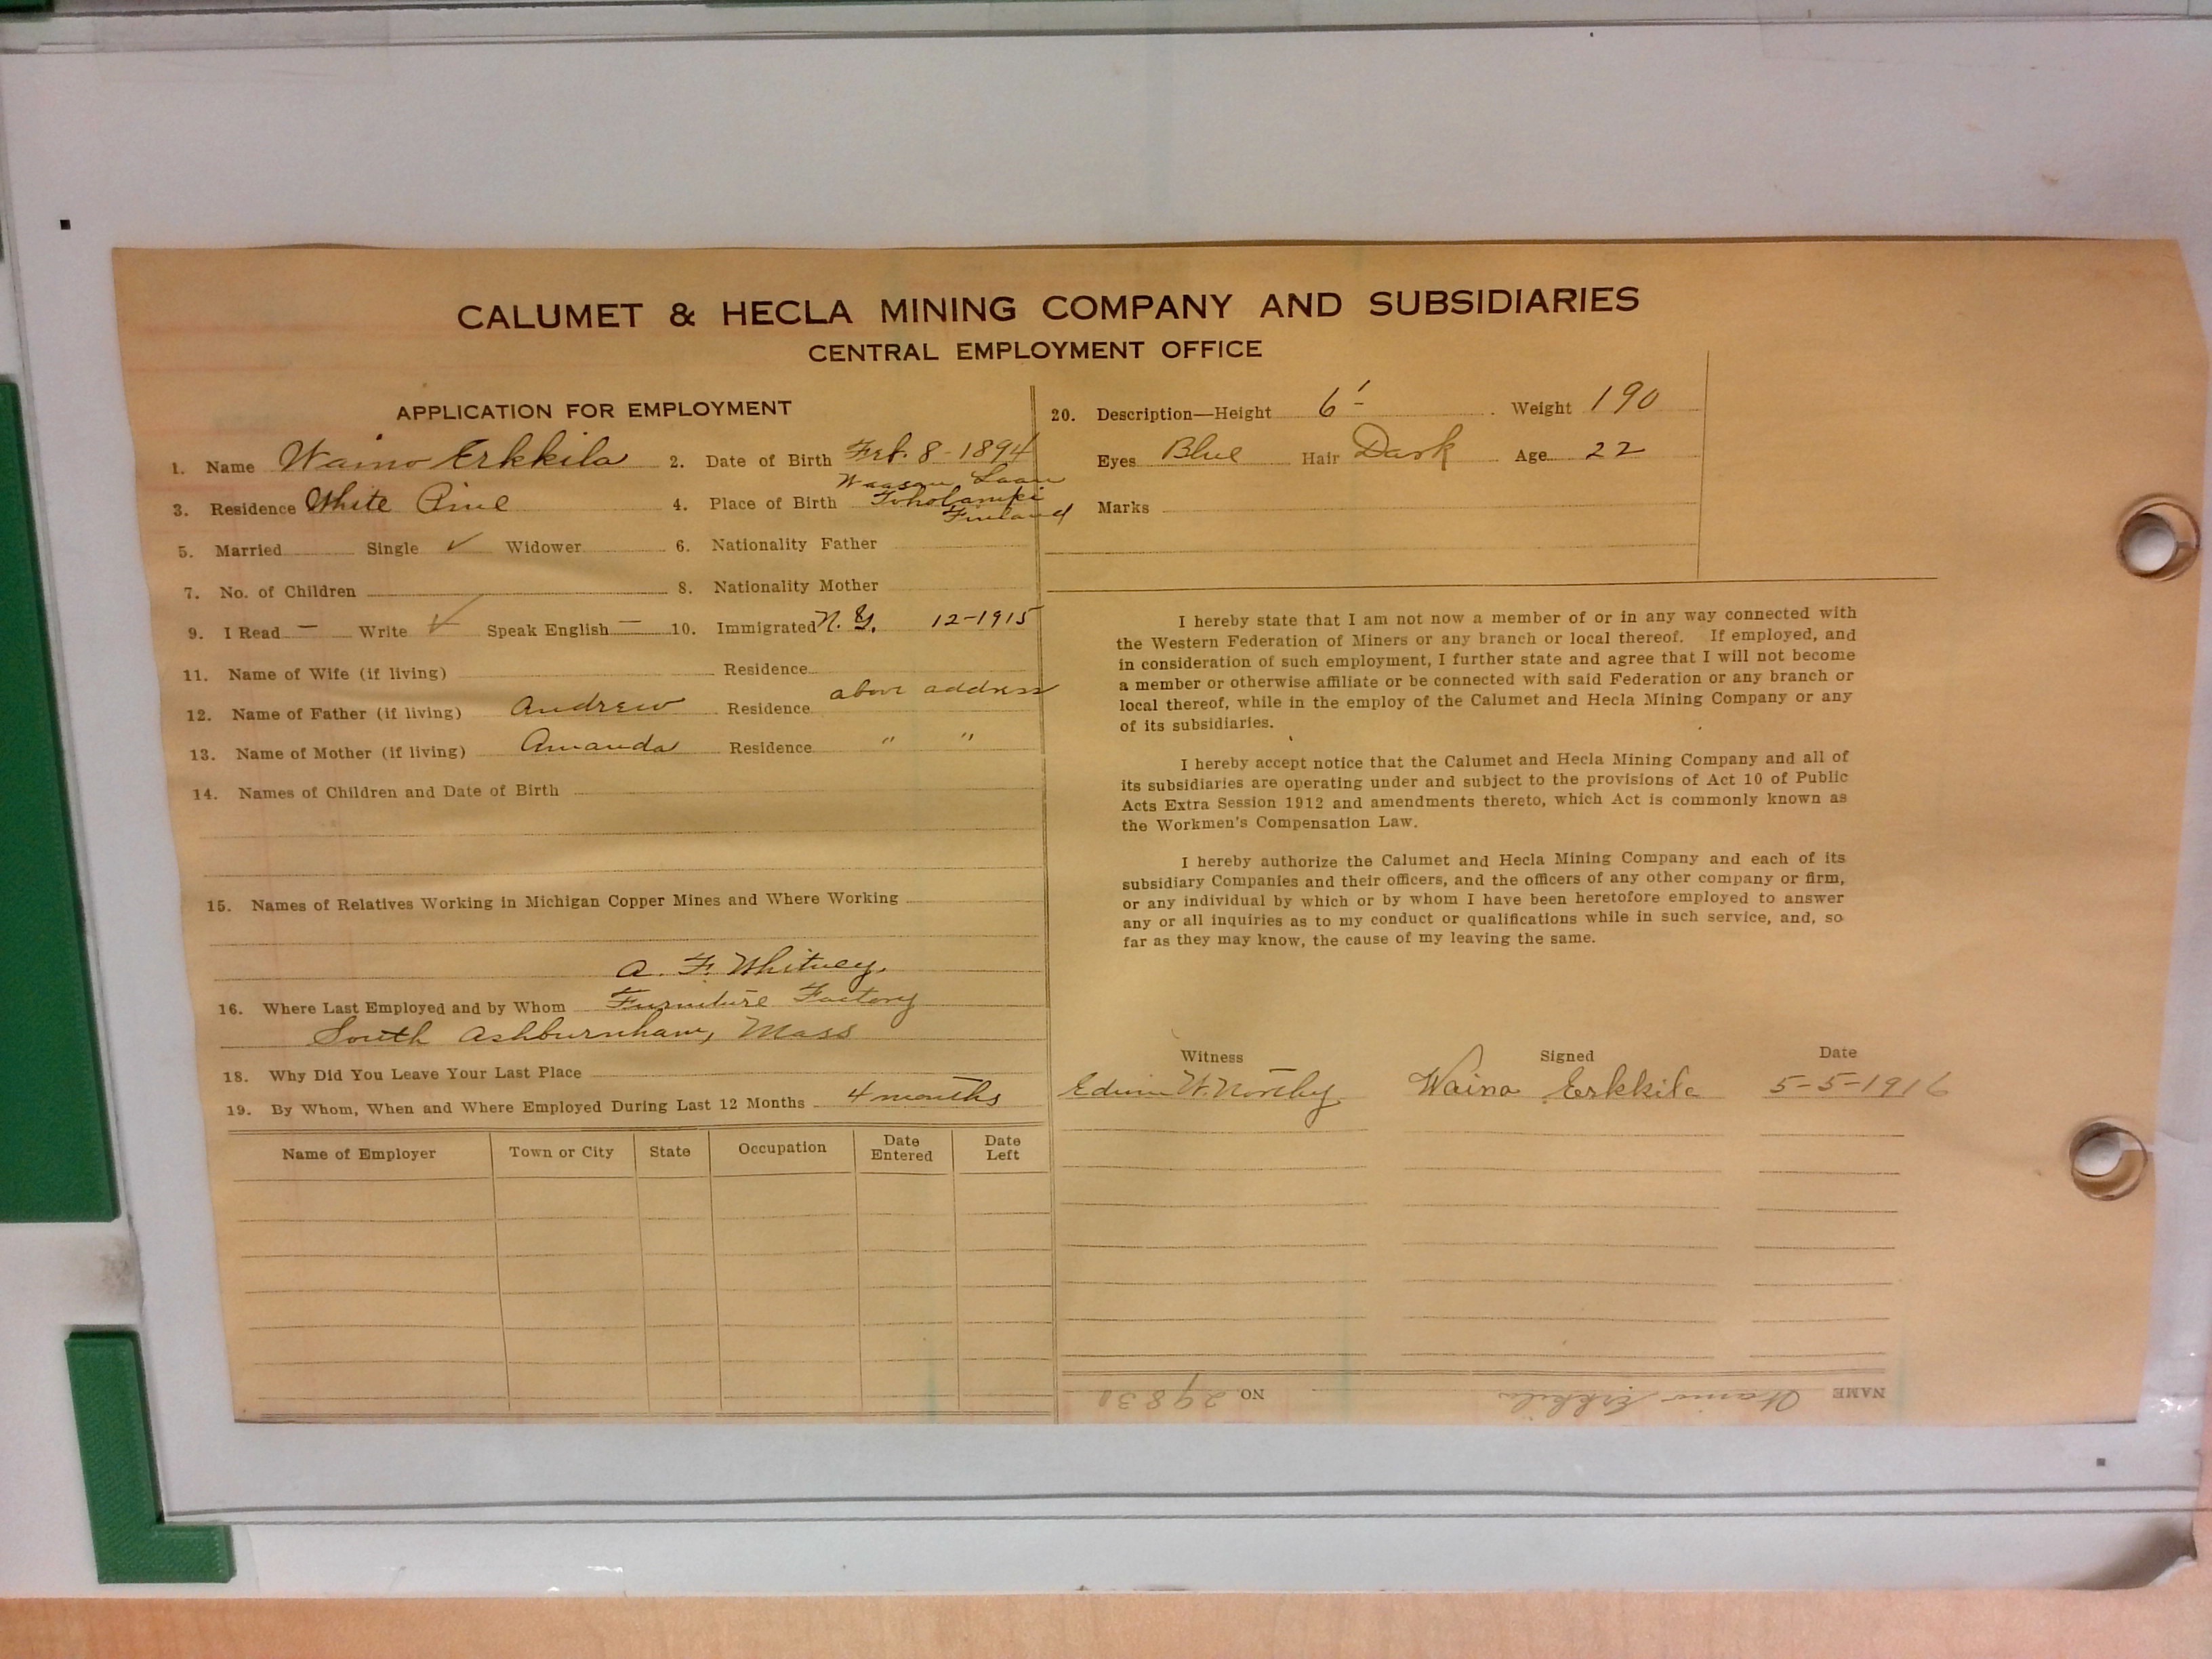 CALUMET & HECLA MINING COMPANY AND SUBSIDIARIES
CENTRAL EMPLOYMENT OFFICE
APPLICATION FOR EMPLOYMENT
1. Name Waino Erkkila 2. Date of Birth Feb. 8-1894
3. Residence White Pine 4. Place of Birth Waasan Laan
Toholampi
Finland
5. Married Single ✓ Widower 6. Nationality Father
7. No. of Children 8. Nationality Mother
9. I Read — Write ✓ Speak English — 10. Immigrated N. Y. 12-1915
11. Name of Wife (if living) Residence
12. Name of Father (if living) Andrew Residence above address
13. Name of Mother (if living) Amanda Residence " "
14. Names of Children and Date of Birth
15. Names of Relatives Working in Michigan Copper Mines and Where Working
A. F. Whitney,
16. Where Last Employed and by Whom Furniture Factory
South Ashburnham, Mass
18. Why Did You Leave Your Last Place
19. By Whom, When and Where Employed During Last 12 Months 4 months
Name of Employer Town or City State Occupation Date Entered Date Left
20. Description—Height 6' - Weight 190
Eyes Blue Hair Dark Age 22
Marks
I hereby state that I am not now a member of or in any way connected with
the Western Federation of Miners or any branch or local thereof. If employed, and
in consideration of such employment, I further state and agree that I will not become
a member or otherwise affiliate or be connected with said Federation or any branch or
local thereof, while in the employ of the Calumet and Hecla Mining Company or any
of its subsidiaries.
I hereby accept notice that the Calumet and Hecla Mining Company and all of
its subsidiaries are operating under and subject to the provisions of Act 10 of Public
Acts Extra Session 1912 and amendments thereto, which Act is commonly known as
the Workmen's Compensation Law.
I hereby authorize the Calumet and Hecla Mining Company and each of its
subsidiary Companies and their officers, and the officers of any other company or firm,
or any individual by which or by whom I have been heretofore employed to answer
any or all inquiries as to my conduct or qualifications while in such service, and, so
far as they may know, the cause of my leaving the same.
Witness Signed Date
Edwin W. Northey Waino Erkkila 5-5-1916
NAME Waino Erkkila NO. 29830